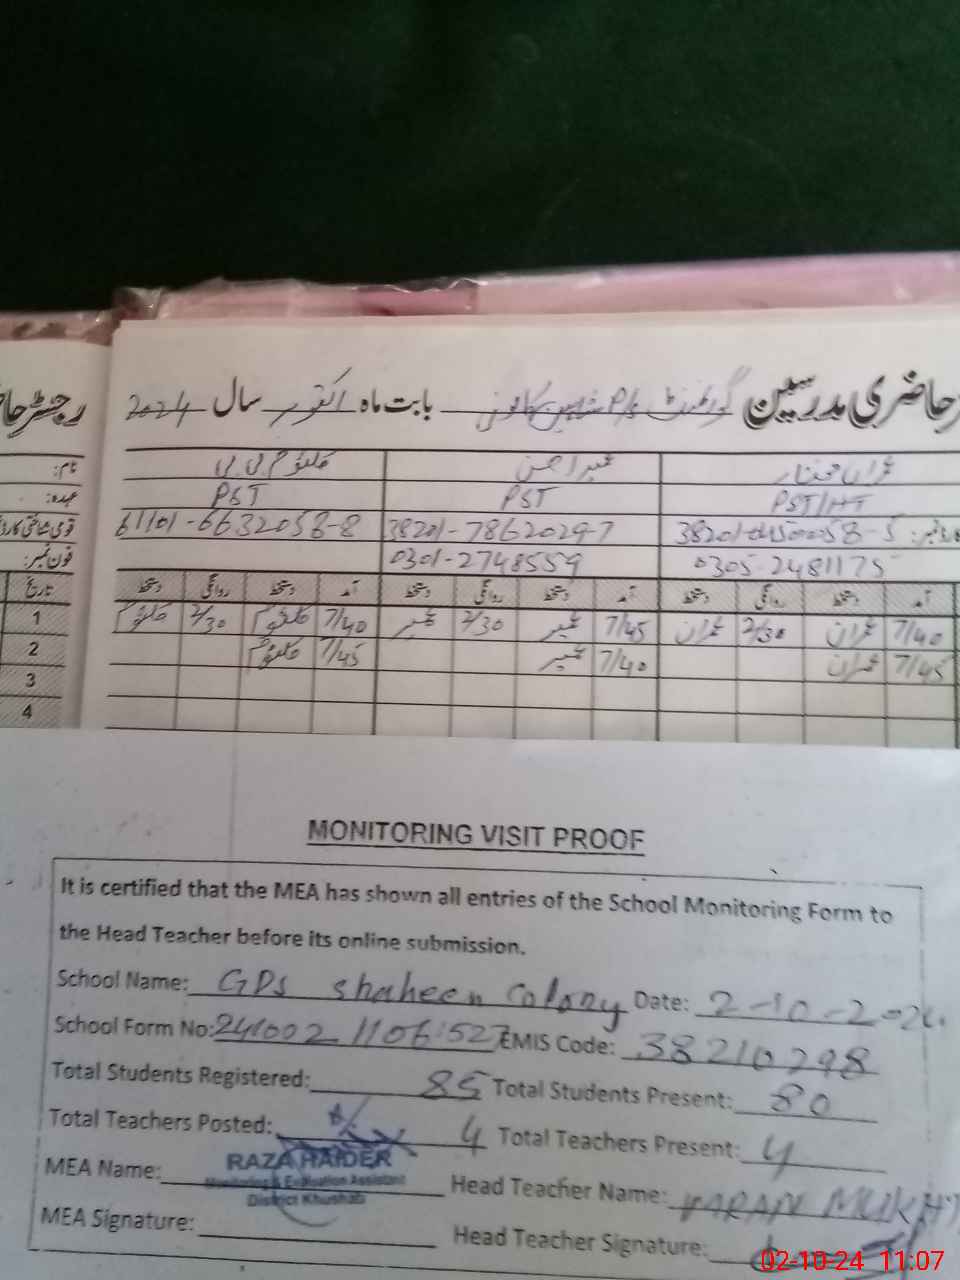 رجسٹر حاضری مدرسین گورنمنٹ P/S شاہین کالونی بابت ماہ اکتوبر سال 2024
نام: عمران مختار عبیر احسن کلثوم بی بی
عہدہ: PST/HT PST PST
قومی شناختی کارڈ نمبر: 38201-7862029-7 61101-6632058-8
فون نمبر: 0305-2481175 0301-2748559
تاریخ آمد دستخط روانگی دستخط آمد دستخط روانگی دستخط آمد دستخط روانگی دستخط
1 7/40 عمران 2/30 عمران 7/45 عبیر 2/30 عبیر 7/40 کلثوم 2/30 کلثوم
2 7/45 عمران 7/40 عبیر 7/45 کلثوم
3
4
MONITORING VISIT PROOF
It is certified that the MEA has shown all entries of the School Monitoring Form to
the Head Teacher before its online submission.
School Name: GPS Shaheen Colony Date: 2-10-2024.
School Form No: 241002 1106:527 EMIS Code: 38210298
Total Students Registered: 85 Total Students Present: 80
Total Teachers Posted: 4 Total Teachers Present: 4
MEA Name: RAZA HAIDER Head Teacher Name: MUKHT
Monitoring & Evaluation Assistant
District Khushab
MEA Signature: Head Teacher Signature:
02-10-24 11:07